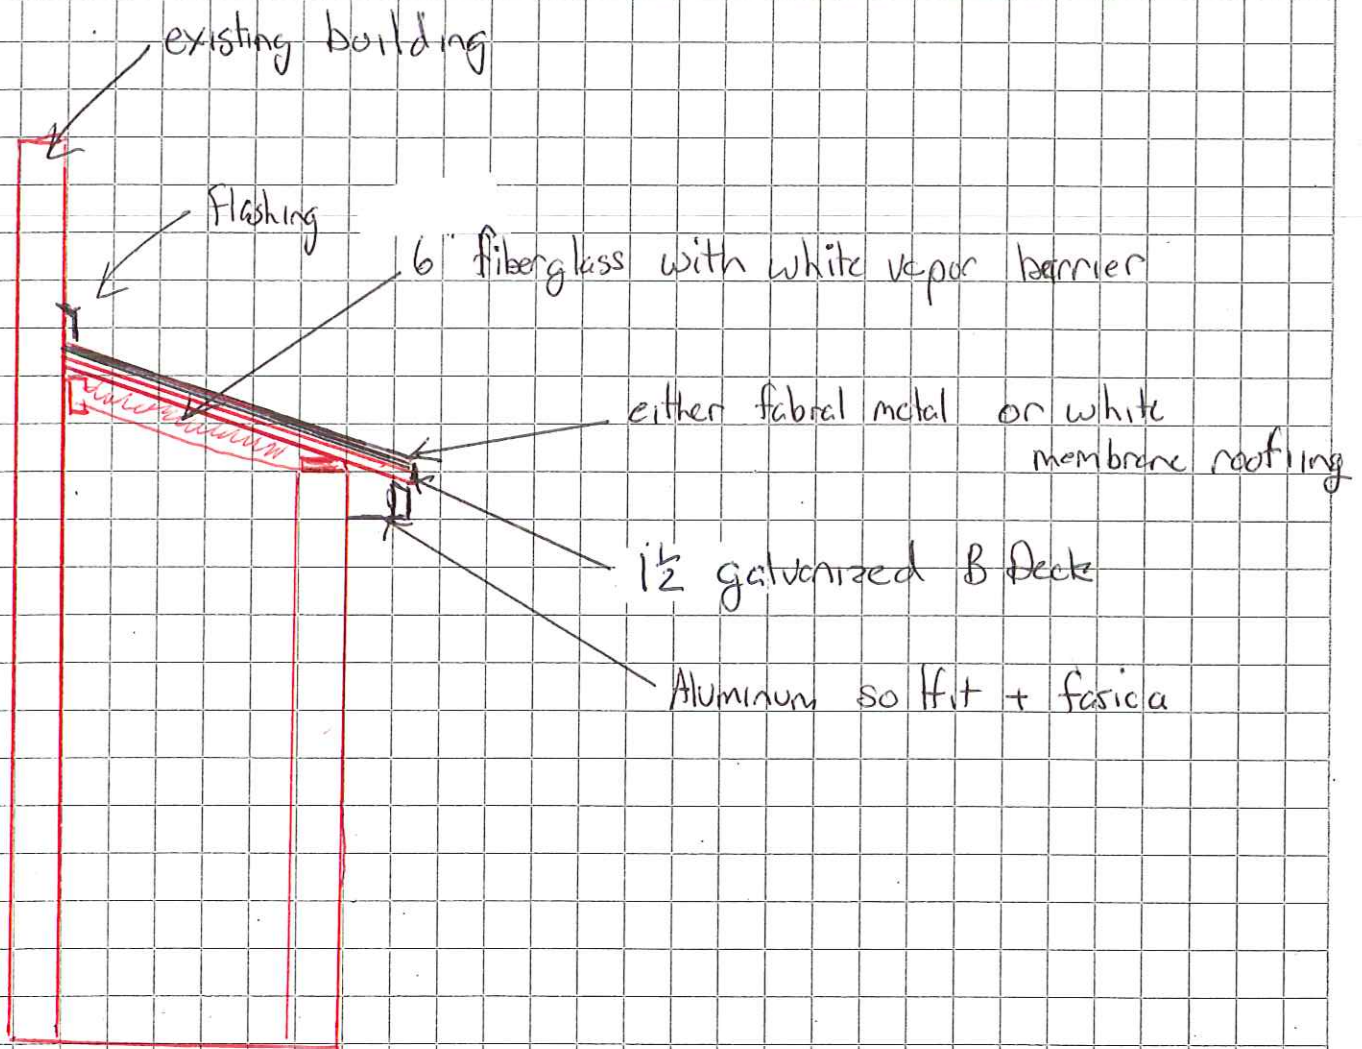 existing building
Flashing
6" fiberglass with white vapor barrier
either fabral metal or white
membrane roofing
1½ galvanized B Deck
Aluminum soffit + fasica